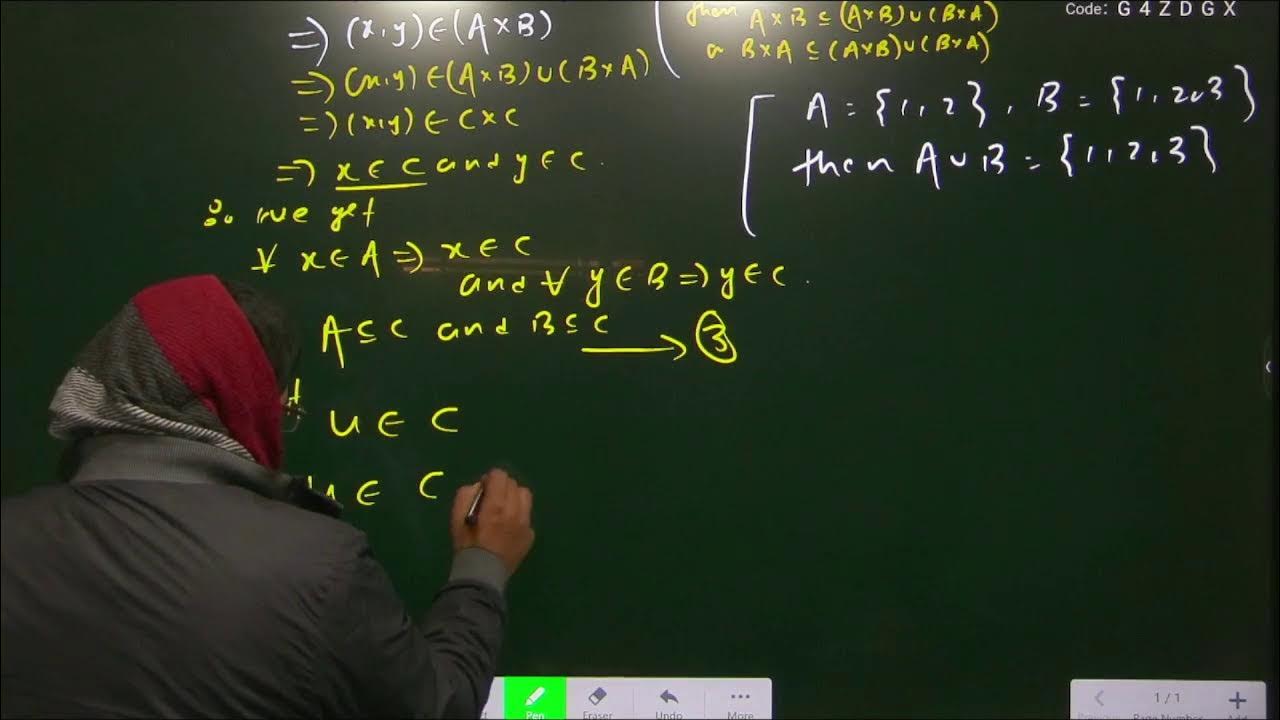 ⇒ (x,y) ∈ (A×B)
⇒ (x,y) ∈ (A×B) ∪ (B×A)
⇒ (x,y) ∈ C×C
⇒ x ∈ C and y ∈ C.
∴ we get
∀ x ∈ A ⇒ x ∈ C
and ∀ y ∈ B ⇒ y ∈ C.
A ⊆ C and B ⊆ C → ③
u ∈ C
u ∈ C
then A×B ⊆ (A×B) ∪ (B×A)
B×A ⊆ (A×B) ∪ (B×A)
Code: G 4 Z D G X
A = {1, 2}, B = {1, 2, 3}
then A ∪ B = {1, 2, 3}
Pen
Eraser
Undo
More
1/1
Page Number